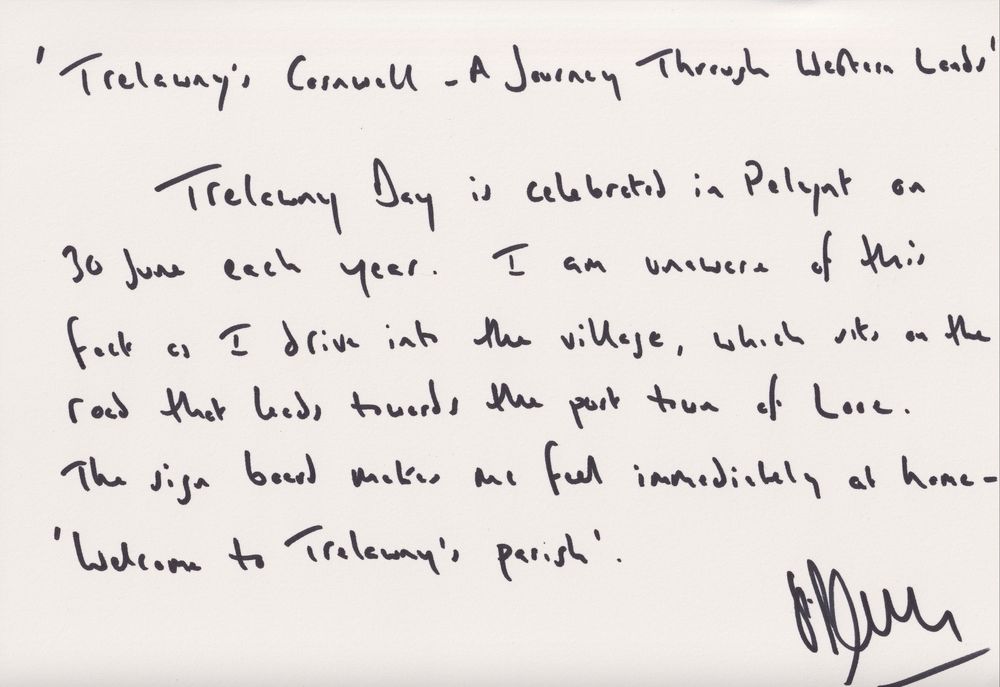 'Trelawny's Cornwall - A Journey Through Western Lands'
Trelawny Day is celebrated in Pelynt on
30 June each year. I am unaware of this
fact as I drive into the village, which sits on the
road that leads towards the port town of Looe.
The sign board makes me feel immediately at home -
'Welcome to Trelawny's parish'.